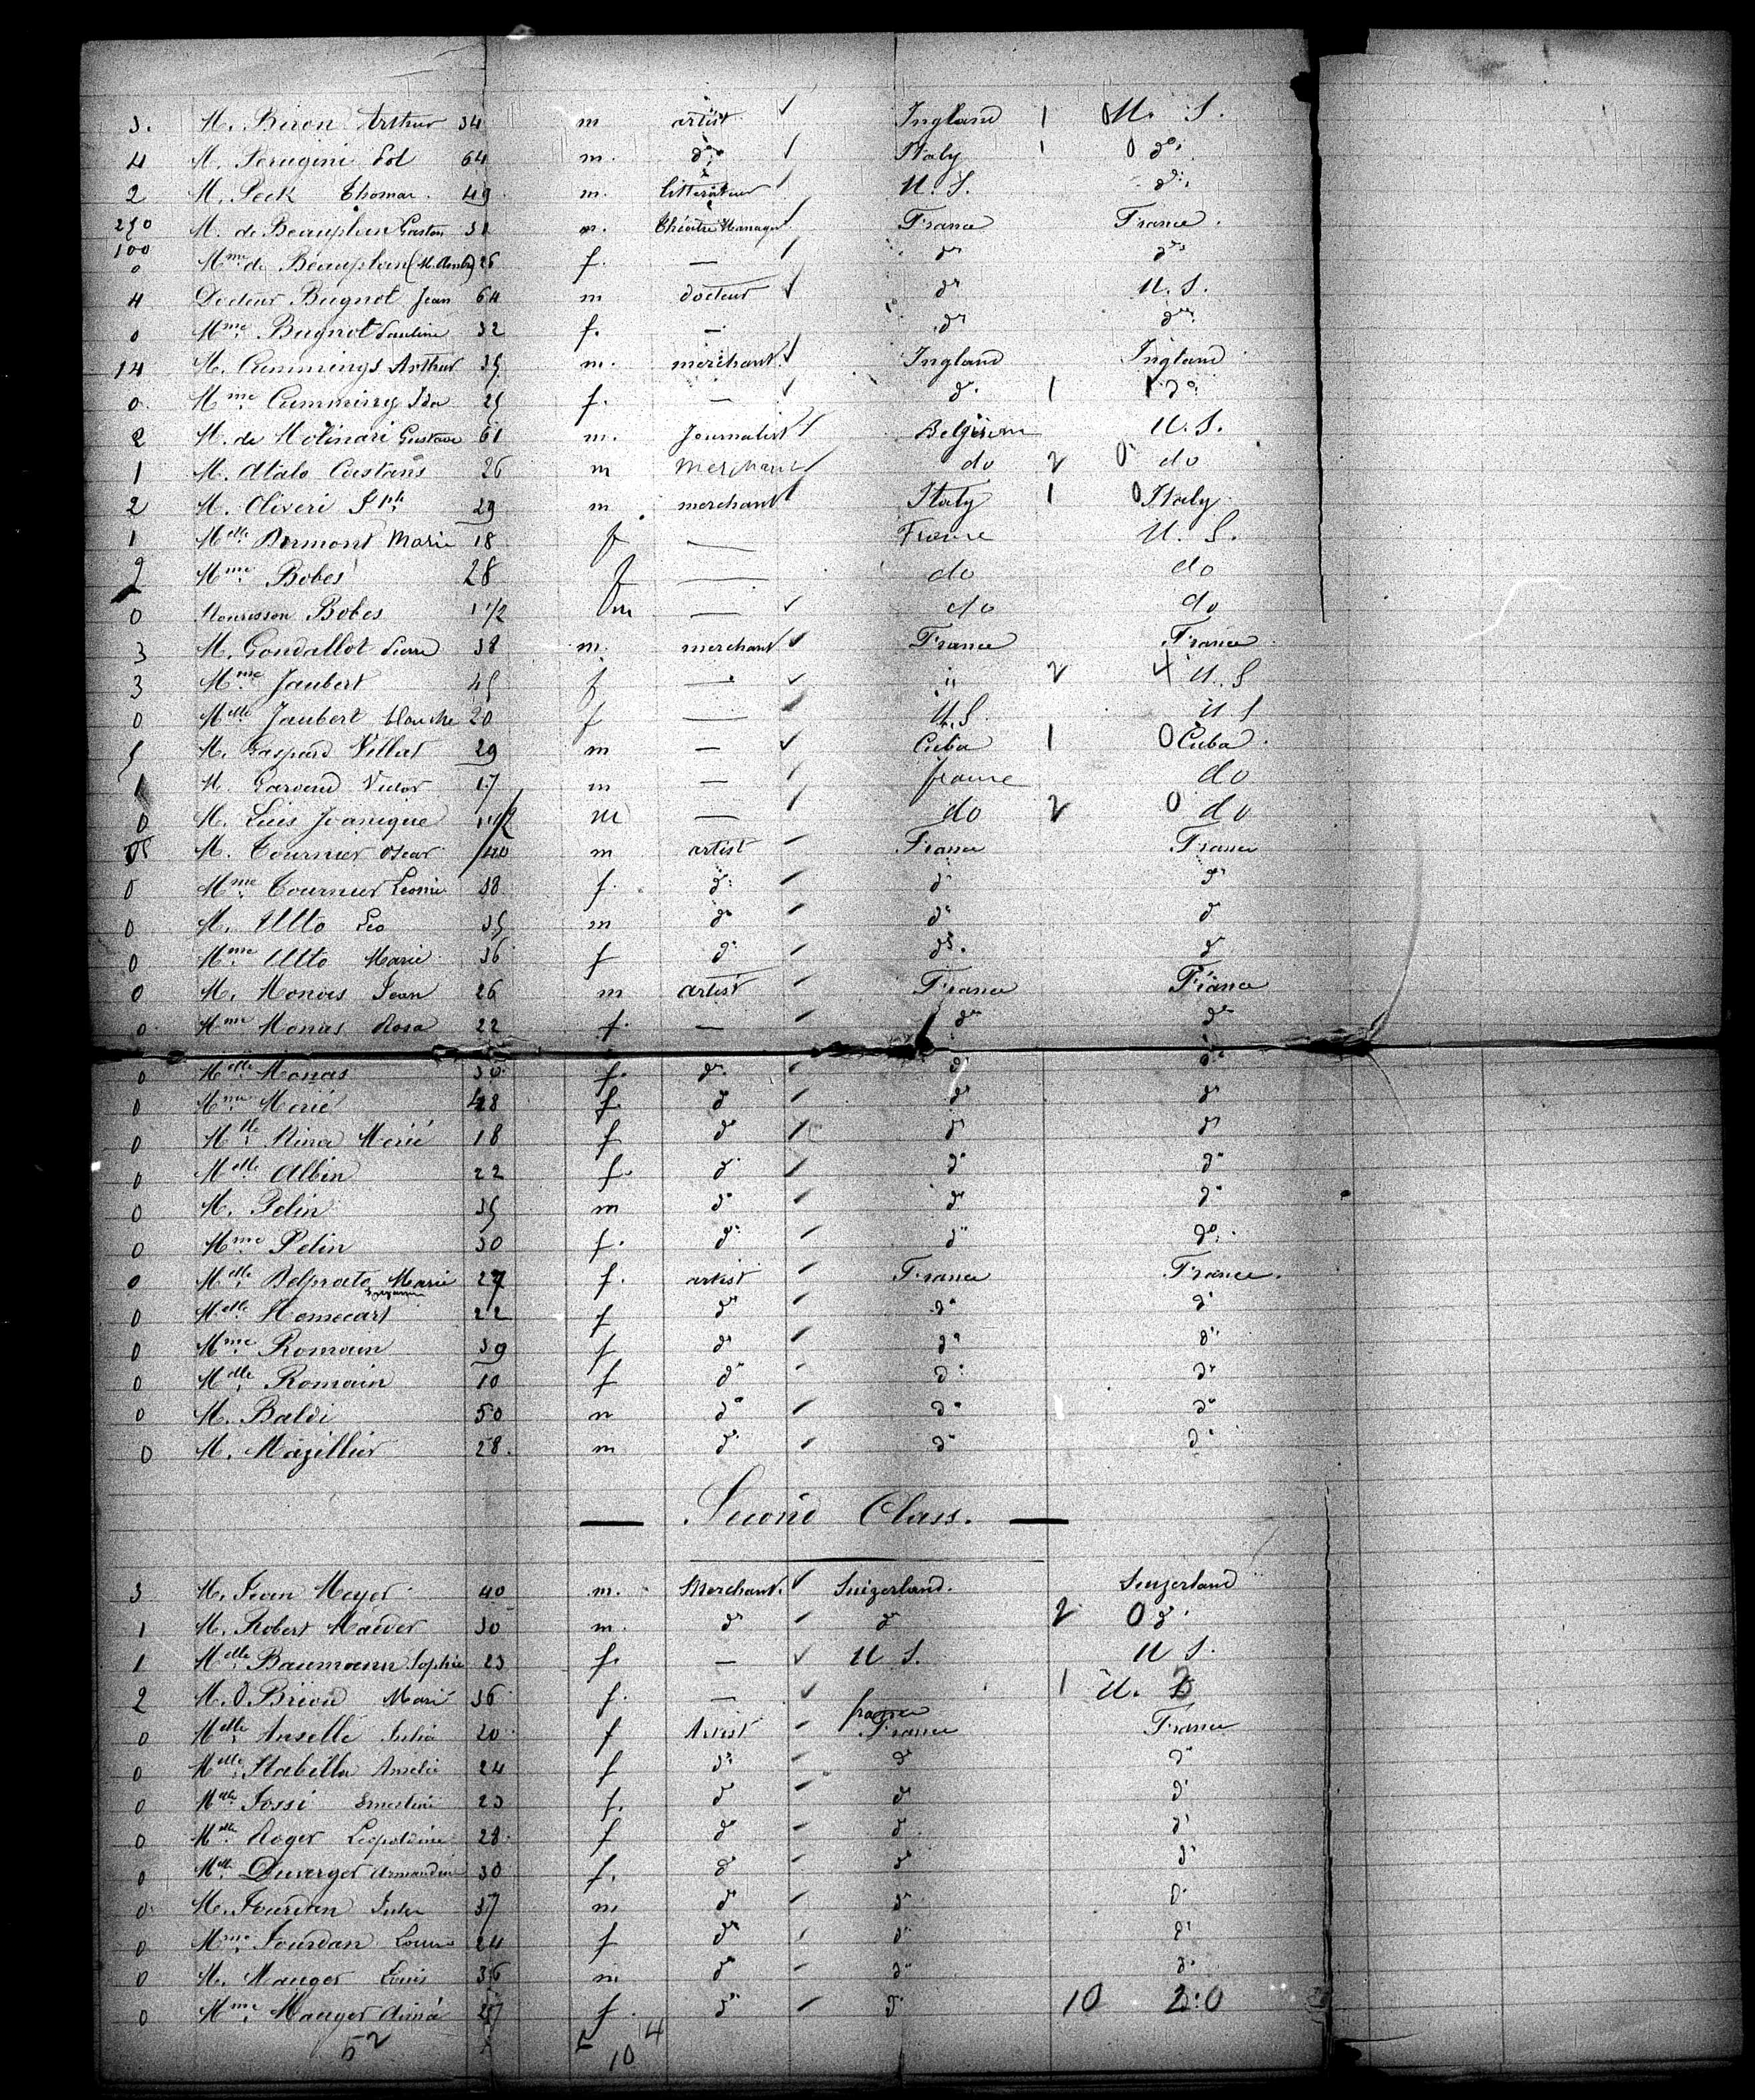 3. M. Biron Arthur 34 m artist ✓ Ingland 1 U. S.
4 M. Perugini Sol 64 m. do ✓ Italy 1 0 do
2 M. Peck Thomas 49 m. litterateur ✓ U. S. do
250 M. de Beauplan Gaston m. théâtre Manager ✓ France France.
100
0 Mme de Beauplan 26 f. — ✓ do do
4 Docteur Bugnot Jean 64 m docteur ✓ do U. S.
0 Mme Bugnot Pauline 32 f. — do do
14 M. Cummings Arthur 35 m. merchant ✓ Ingland Ingland
0. Mme Cumming Ida 25 f. — ✓ do 1 1 do
2 M. de Molinari Gustave 61 m. Journalist ✓ Belgium U. S.
1 M. Atalo Custans 26 m merchant ✓ do 2 0 do
2 M. Oliveri Jph 29 m merchant ✓ Italy 1 0 Italy
1 Melle Dermont Marie 18 f — France U. S.
2 Mme Bobes 28 f — do do
0 Nourisson Bobes 1 1/2 m — ✓ do do
3 M. Gondallot Pierre 38 m. merchant ✓ France France
3 Mme Jaubert 45 f — ✓ " 2 4 U. S
0 Melle Jaubert blanche 20 f — U. S. U S
5 M. Gaspard Villat 29 m — ✓ Cuba 1 0 Cuba.
1 M. Garaud Victor 17 m — france do
0 M. Luis Joanique 1 1/2 m — do 2 0 do
M. Tournier Oscar 40 m artist France France
0 Mme Tournier Leonie 38 f. do do do
0 M. Ullto Leo 35 m do do do
0 Mme Ullto Marie 36 f do do. do
0 M. Monas Jean 26 m artist France France
0. Mme Monas Rosa 22 f. — do do
0 Melle Monas 30 f. do do do
0 Mme Merié 48 f. do do do
0 Mlle Nina Merié 18 f do do do
0 Melle Albin 22 f. do do do
0 M. Pelin 35 m do do do
0 Mme Pelin 30 f. do do do.
0 Melle Delprato Marie 27 f. artist France France.
0 Melle Homecart 22 f do do do
0 Mme Romain 39 f do do do
0 Melle Romain 10 f do do do
0 M. Baldi 50 m do do do
0 M. Mazillier 28. m do do do
— Second Class. —
3 M. Jean Meyer 40 m. Merchant. ✓ Suizerland. Suizerland
1 M. Robert Maëder 30 m. do do 2 0 do
1 Melle Baumann Sophie 23 f. — ✓ U S. U S.
2 M. O'Brien Marie 36 f. — ✓ france 1 U.
0 Melle Anselle Julia 20 f Artist France France
0 Melle Stabilla Amelie 24 f do do do
0 Melle Jossi Ernestine 23 f. do do do
0 Melle Roger Leopoldine 28. f do do do
0 Melle Duverger Armandine 30 f. do do do
0. M. Jourdan Jules 37 m do do do
0 Mme Jourdan Louise 24 f do do do
0 M. Mauger Louis 36 m do do do
0 Mme Mauger Aimée 27 f. do do 10 2:0
52 14
10